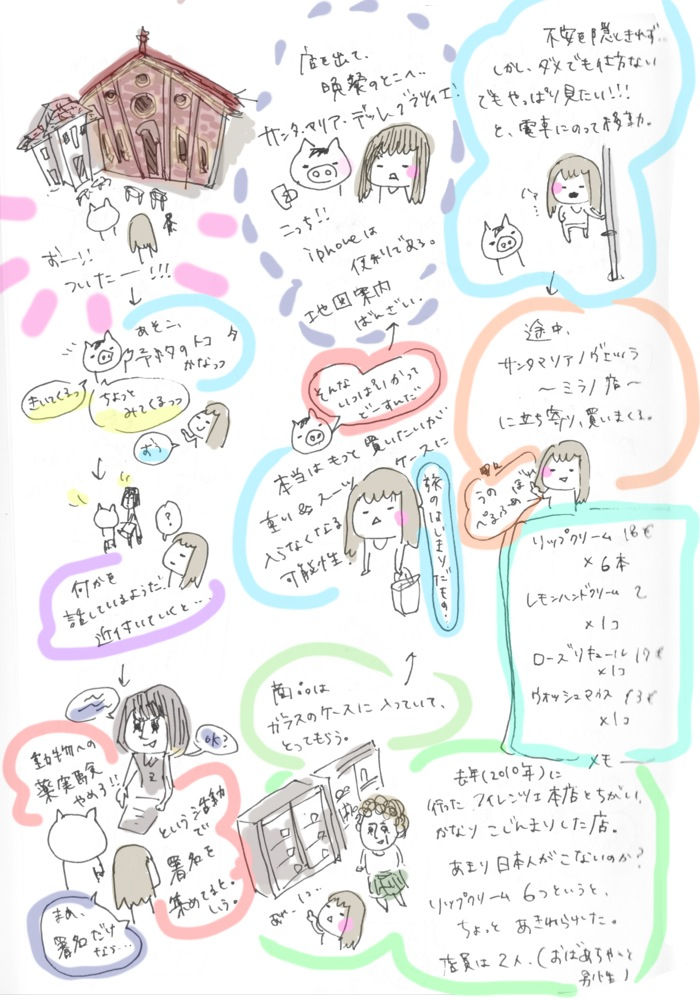 不安を隠しきれず…
しかし、ダメでも仕方ない
でもやっぱり見たい!!!
と、電車にのって移動。
途中、
サンタマリアノヴェッラ
〜ミラノ店〜
に立ち寄り、買いまくる。
リップクリーム 18€
×6本
レモンハンドクリーム 2
×1コ
ローズリキュール 17€
×1コ
ウォッシュマウス 13€
×1コ
メモ
去年(2010年)に
行った フィレンツェ本店とちがい、
かなり こじんまりした店。
あまり日本人がこないのか?
リップクリーム 6つというと、
ちょっと あきれられた。
店員は2人。(おばあちゃんと
男性)
商品は
ガラスのケースに入っていて、
とってもらう。
あ…
本当はもっと買いたいが
重い&スーツケースに
入らなくなる
可能性
旅のはじまりだもの。
そんな
いっぱいかって
どーすんだ
店を出て、
晩餐のとこへ…
サンタ・マリア・デッレ・グラツィエ!
こっち!!
iphoneは
便利である。
地図案内
ばんざい。
おー!!
ついたー!!!
あそこ、
チケットのトコ
かなっ
きいてくるっ
ちょっと
みてくるっっ
おう
?
何かを
話しているようだ!
近付いていくと…
OK?
動物への
薬実験
やめろ!!
という活動
で
署名を
集めてると。
しう。
まぁ、
署名だけ
なら…